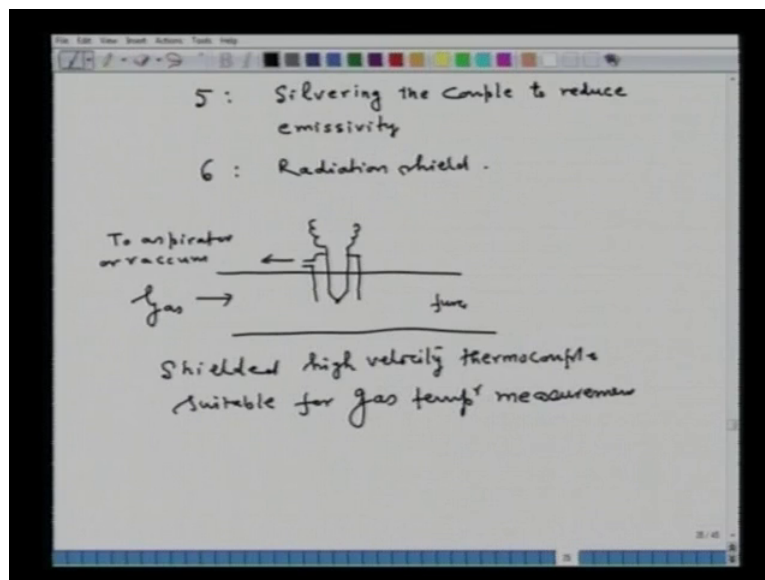 File Edit View Insert Actions Tools Help
5 : Silvering the couple to reduce
emissivity
6 : Radiation shield .
To aspirator
or vaccum
Gas
Shielded high velocity thermocouple
Suitable for gas tempr measuremen
25